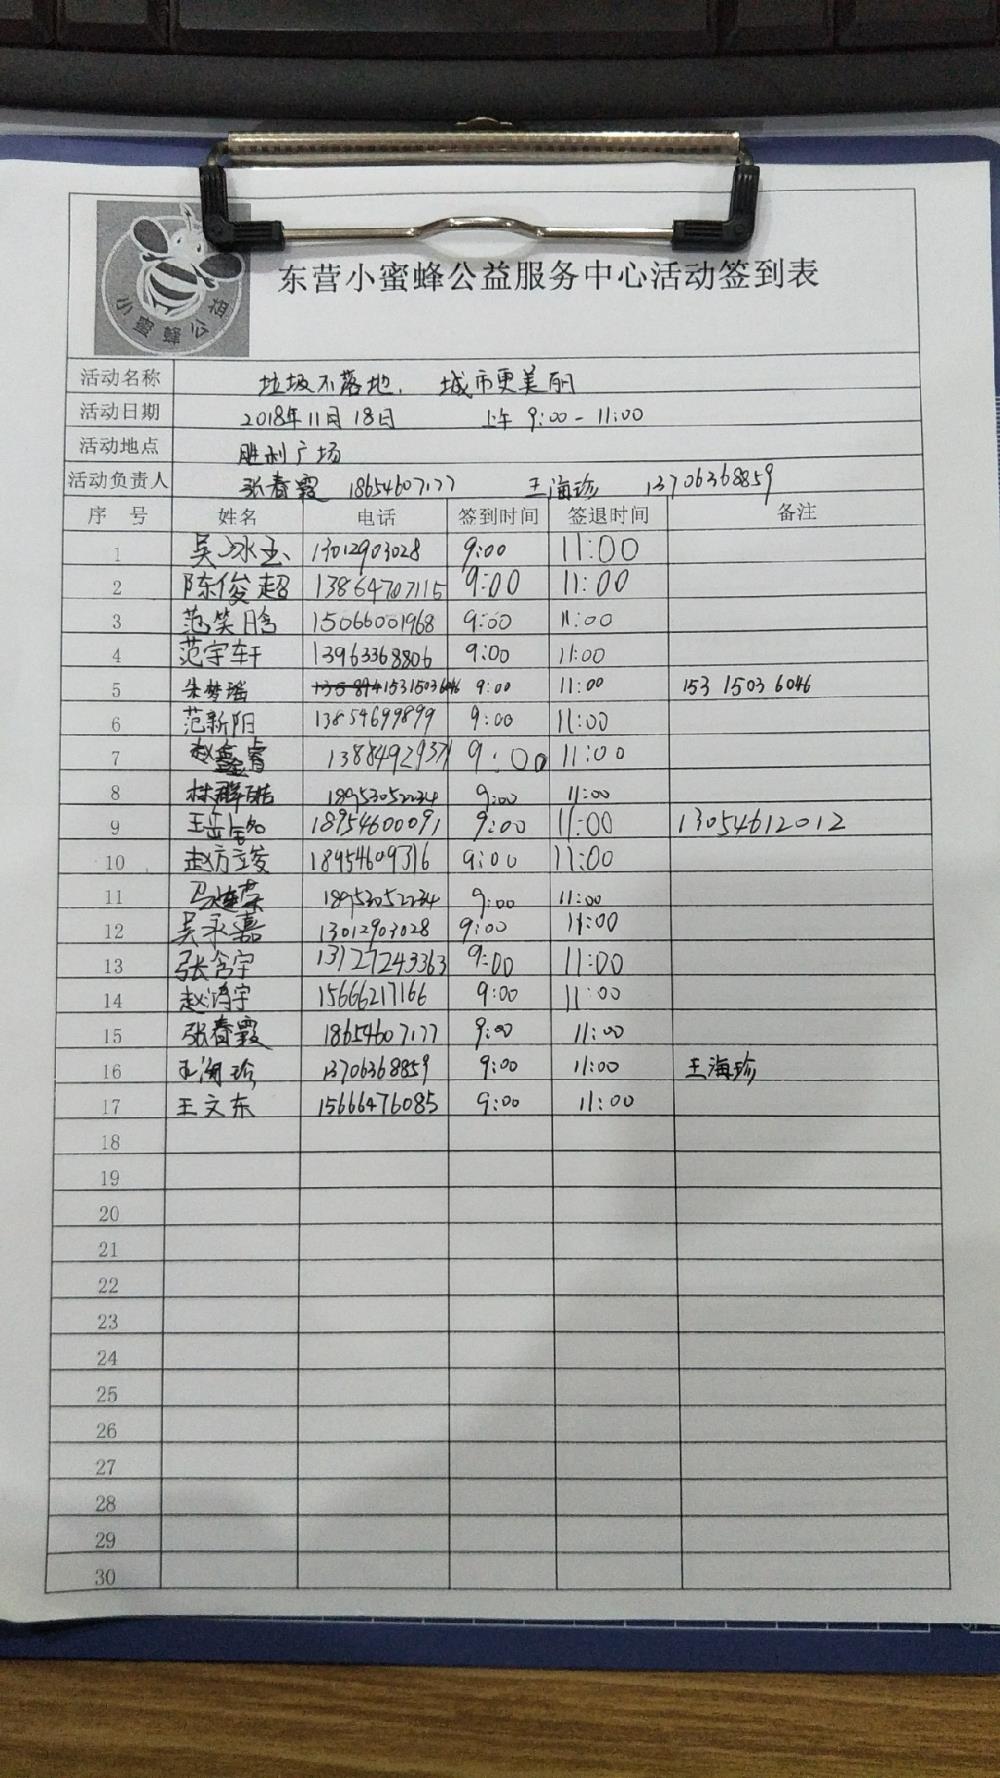 小蜜蜂公益
东营小蜜蜂公益服务中心活动签到表
活动名称 垃圾不落地, 城市更美丽
活动日期 2018年11月18日 上午 9:00-11:00
活动地点 胜利广场
活动负责人 张春霞 18654607177 王海珍 13706368859
序号 姓名 电话 签到时间 签退时间 备注
1 吴冰玉 13012903028 9:00 11:00
2 陈俊超 13864707115 9:00 11:00
3 范笑晗 15066001968 9:00 11:00
4 范宇轩 13963368806 9:00 11:00
5 朱梦瑶 15315036046 9:00 11:00 153 1503 6046
6 范新阳 13854699899 9:00 11:00
7 赵鑫睿 13884929371 9:00 11:00
8 18953052234 9:00 11:00
9 18954600091 9:00 11:00 13054612012
10 赵方立俊 18954609316 9:00 11:00
11 18953052234 9:00 11:00
12 吴承嘉 13012903028 9:00 11:00
13 张含宇 13127243363 9:00 11:00
14 赵鸿宇 15666217166 9:00 11:00
15 张春霞 18654607177 9:00 11:00
16 王海珍 13706368859 9:00 11:00 王海珍
17 王文东 15666476085 9:00 11:00
18
19
20
21
22
23
24
25
26
27
28
29
30